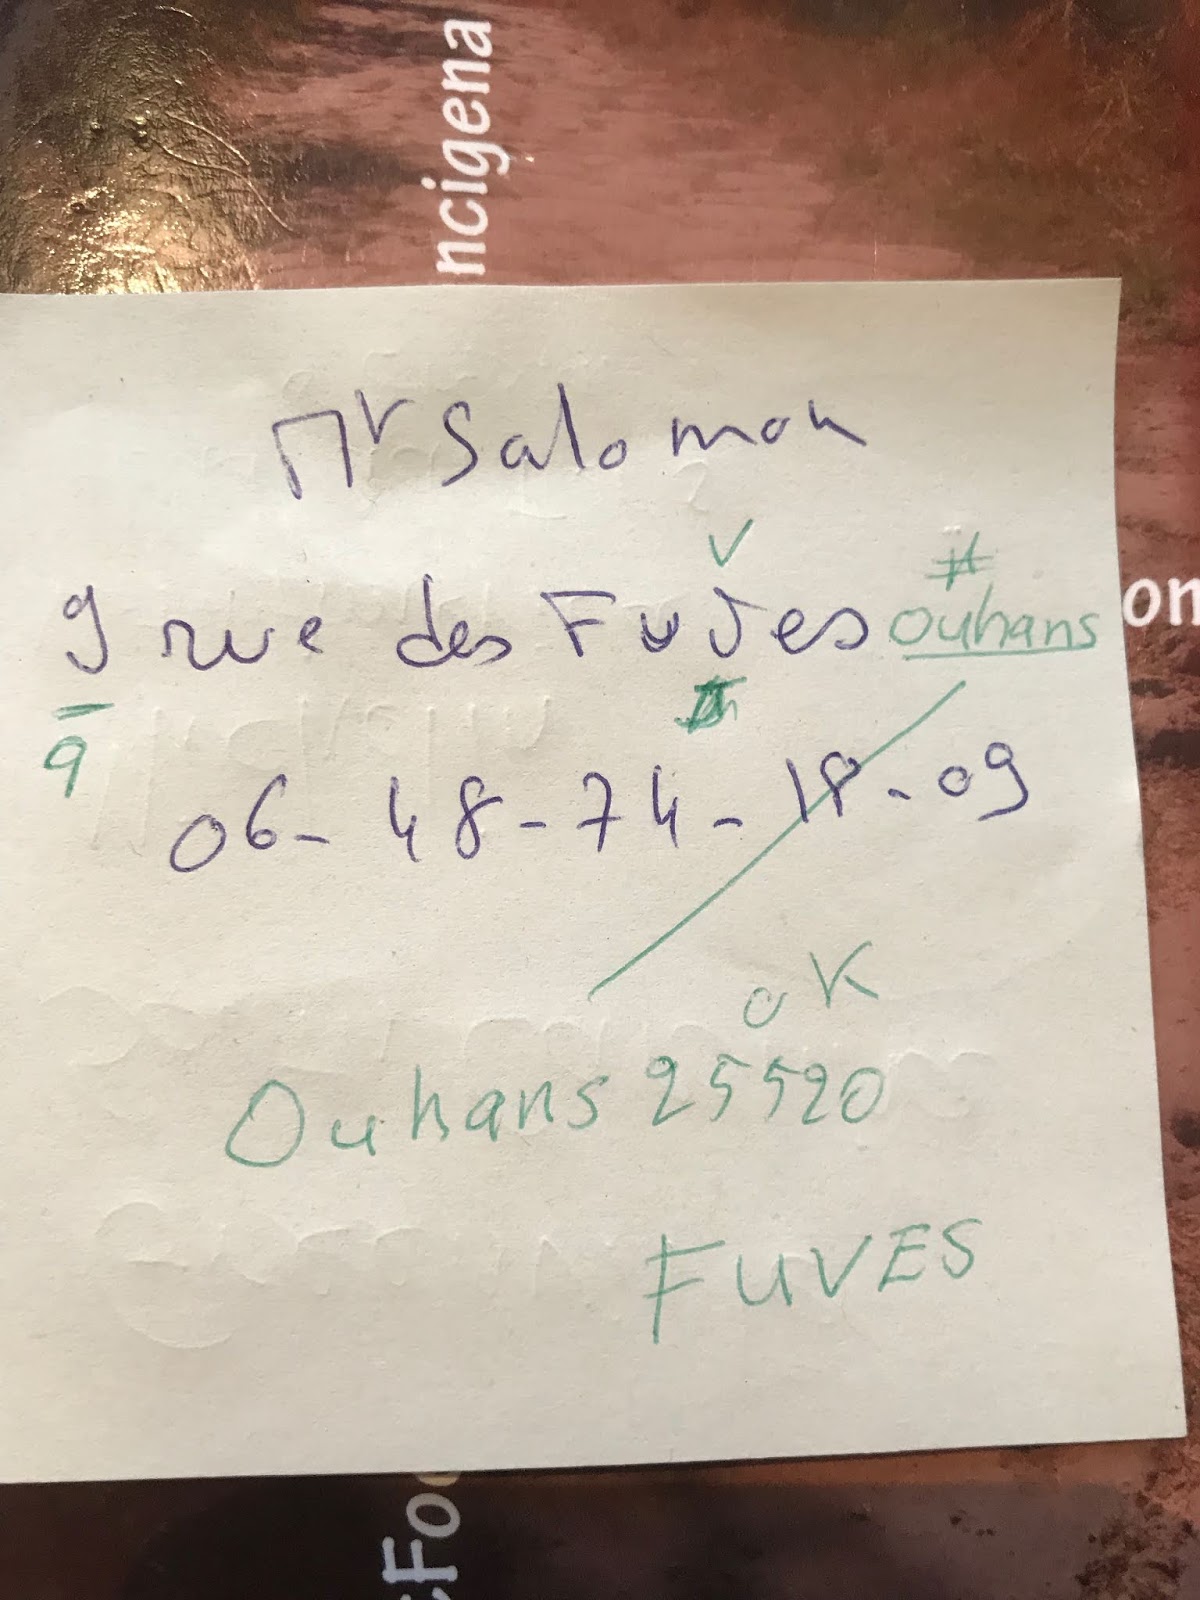 ncigena
Mr Salomon
V
#
9 rue des Fuves ouhans
on
9
06-48-74-18-09
oK
Ouhans 25520
FUVES
cFo